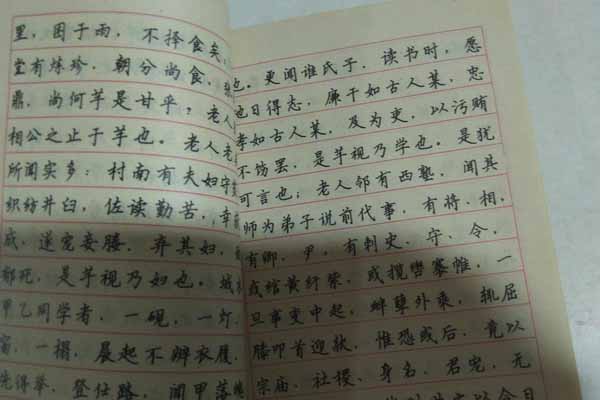 里，困于雨，不择食矣，
堂有炼珍，朝分尚食，
鼎，尚何芋是甘乎？老人
相公之止于芋也。老人老
所闻实多：村南有夫妇守
织纺井臼，佐读勤苦，幸
成，遂宠妾媵，弃其妇，
郁死，是芋视乃妇也。城
甲乙同学者，一砚，一灯，
窗，一榻，晨起不辨衣履，
先得举，登仕路，闻甲落
也。更闻谁氏子，读书时，愿
也日得志，廉干如古人某，忠
孝如古人某，及为吏，以污贿
不饬罢，是芋视乃学也。是犹
可言也；老人邻有西塾，闻其
师为弟子说前代事，有将、相，
有卿、尹，有刺史、守、令，
或绾黄纡紫，或揽辔褰帷，一
旦事变中起，衅孽外乘，辄屈
膝叩首迎款，惟恐或后，竟以
宗庙、社稷、身名、君宠，无